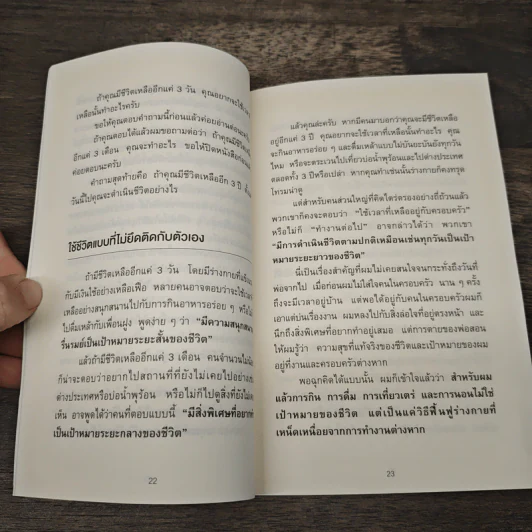 ถ้าคุณมีชีวิตเหลืออีกแค่ 3 วัน คุณอยากจะใช้เวลา
เหลือนั้นทำอะไรครับ
ขอให้คุณตอบคำถามนี้ก่อนแล้วค่อยอ่านต่อนะครับ
ถ้าคุณตอบได้แล้วผมขอถามต่อว่า ถ้าคุณมีชีวิตเหลือ
อีกแค่ 3 เดือน คุณจะทำอะไร ขอให้ปิดหนังสือก่อนแล้ว
ค่อยตอบนะครับ
คำถามสุดท้ายคือ ถ้าคุณมีชีวิตเหลืออีก 3 ปี
วันนี้ไปคุณจะดำเนินชีวิตอย่างไร
ใช้ชีวิตแบบที่ไม่ยึดติดกับตัวเอง
ถ้ามีชีวิตเหลืออีกแค่ 3 วัน โดยมีร่างกายที่แข็งแรง
กับมีเงินใช้อย่างเหลือเฟือ หลายคนอาจตอบว่าจะใช้เวลา
เหลืออยู่สนุกสนานไปกับการกินอาหารอร่อย ๆ หรือไม่ก็
ไปดื่มเหล้ากับเพื่อนฝูง พูดง่าย ๆ ว่า “มีความสนุกสนาน
รื่นรมย์เป็นเป้าหมายระยะสั้นของชีวิต”
แล้วถ้ามีชีวิตเหลืออีกแค่ 3 เดือน คนจำนวนไม่น้อย
ก็น่าจะตอบว่าอยากไปสถานที่ที่ยังไม่เคยไปอย่าง
ต่างประเทศหรือบ่อน้ำพุร้อน หรือไม่ก็ไปดูสิ่งที่ยังไม่เคย
เห็น อาจพูดได้ว่าคนที่ตอบแบบนี้ “มีสิ่งพิเศษที่อยากทำ
เป็นเป้าหมายระยะกลางของชีวิต”
22
แล้วคุณล่ะครับ หากมีคนมาบอกว่าคุณจะมีชีวิตเหลือ
อยู่อีกแค่ 3 ปี คุณอยากจะใช้เวลาที่เหลือนั้นทำอะไร คุณ
จะกินอาหารอร่อย ๆ และดื่มเหล้าแบบไม่บันยะบันยังทุกวัน
ไหม หรือจะตระเวนไปเที่ยวบ่อน้ำพุร้อนและไปต่างประเทศ
ตลอดทั้ง 3 ปีหรือเปล่า หากคุณทำเช่นนั้นร่างกายก็คงทรุด
โทรมน่าดู
แต่สำหรับคนส่วนใหญ่ที่คิดไตร่ตรองอย่างถี่ถ้วนแล้ว
พวกเขาก็คงจะตอบว่า “ใช้เวลาที่เหลืออยู่กับครอบครัว”
หรือไม่ก็ “ทำงานต่อไป” อาจกล่าวได้ว่า พวกเขา
“มีการดำเนินชีวิตตามปกติเหมือนเช่นทุกวันเป็นเป้า
หมายระยะยาวของชีวิต”
นี่เป็นเรื่องสำคัญที่ผมไม่เคยสนใจจนกระทั่งถึงวันที่
พ่อจากไป เมื่อก่อนผมไม่ใส่ใจคนในครอบครัว นาน ๆ ครั้ง
ถึงจะมีเวลาอยู่บ้าน แต่พอได้อยู่กับคนในครอบครัวผมก็
เอาแต่บ่นเรื่องงาน ผมหลงไปกับสิ่งล่อใจที่อยู่ตรงหน้า และ
นึกถึงสิ่งพิเศษที่อยากทำอยู่เสมอ แต่การตายของพ่อสอน
ให้ผมรู้ว่า ความสุขที่แท้จริงของชีวิตและเป้าหมายของผม
อยู่ที่งานและครอบครัวต่างหาก
พอฉุกคิดได้แบบนั้น ผมก็เข้าใจแล้วว่า สำหรับผม
แล้วการกิน การดื่ม การเที่ยวเตร่ และการนอนไม่ใช่
เป้าหมายของชีวิต แต่เป็นแค่วิธีฟื้นฟูร่างกายที่
เหน็ดเหนื่อยจากการทำงานต่างหาก
23